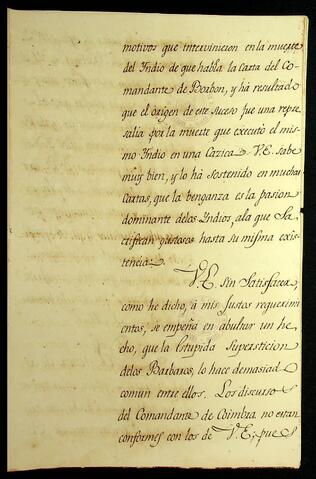 motivos que intervinieron en la muerte
del Indio de que habla la Carta del Co-
mandante de Borbon, y há resultado
que el origen de este suceso fue una repre-
salia por la muerte que executó el mis-
mo Indio en una Cazica. V.E. sabe
muy bien, y lo há sostenido en muchas
Cartas, que la benganza es la pasion
dominante delos Indios, ala que Sa-
crifican gustosos hasta su misma exis-
tencia.
V.E. sin Satisfacer,
como he dicho, á mis justos requerimi-
entos, se empeña en abultar un he-
cho, que la Estupida Supersticion
delos Barbaros, lo hace demasiad
comun entre ellos. Los discursos
del Comandante de Coimbra no estan
conformes con los de V.E; pues